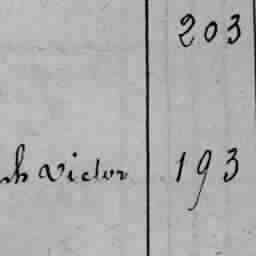 203
Victor 193